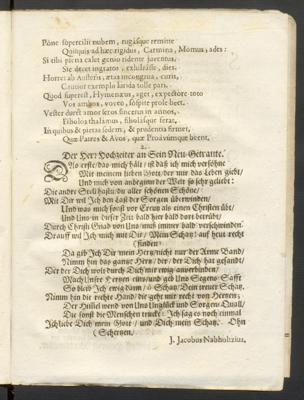 Pone supercilii nubem, rugisque remitte
Quisquis ad hæc rigidus, Carmina, Momus, ades:
Si tibi pœna calet genio ridente juventus.
Sic decet ingratos, exhilarasse, dies.
Horret ab Austeris, ætas incongrua, curis,
exemplo tolle pari.
Quod superest, Hymenæus, aget, expectore toto
Vos amans, voveo, sospite prole beet.
Vester duret amor seros sincerus in annos,
Fibolos thalamus, fibolosque ferat,
In quibus & pietas sedem, & prudentia firmet,
Quæ Patres & Avos, quæ Proavumque beent.
2.
Der Herr Hochzeiter an Sein Neu-Getraute.
das mich hält ist daß ich mich versöhne
Mit meinem lieben Gott, der mir das Leben giebt/
Und mich von anbeginn der Welt so sehr geliebt:
Die ander Stell hast du aller schönsten Schöne/
Mit Dir wil Jch den Last der Sorgen überwinden/
Und was mich sonst vor Creutz als einen Christen übt/
Und Uns in dieser Zeit bald hier bald dort betrübt/
Durch Christi Gnad von Uns muß immer bald verschwinden.
Drauff wil Jch mich mit Dir/ Mein Schatz! auf heut recht
(finden
Da gib Jch Dir mein Hertz/ nicht nur der Arme Band/
Nimm hin das gantze Hertz/ der/ der Dich hat gesandt/
Der der Dich wolt durch Dich mir ewig anverbinden/
Mach Unsre Hertzen eins/ und geb Uns Segens-Safft
So bleib Jch ewig dann/ ô Schatz/ Dein treuer Schatz.
Nimm hin die rechte Hand/ die geht mir recht von Hertzen;
Der Himmel wend von Uns Unglück und Sorgen-Quall/
Die sonst die Menschen truckt: Jch sag es noch einmal
Jch liebe Dich mein Gott/ und Dich mein Schatz. Ohn
(Schertzen.
J. Jacobus Nabholtzius.